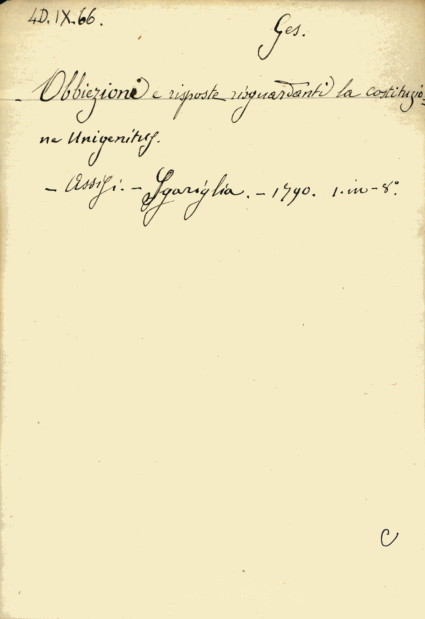 4D.IX.66.
Ges.
Obbiezioni e risposte risguardanti la costituzio=
ne Unigenitus.
- Assisi. - Sgariglia. - 1790. 1. in-8°.
C